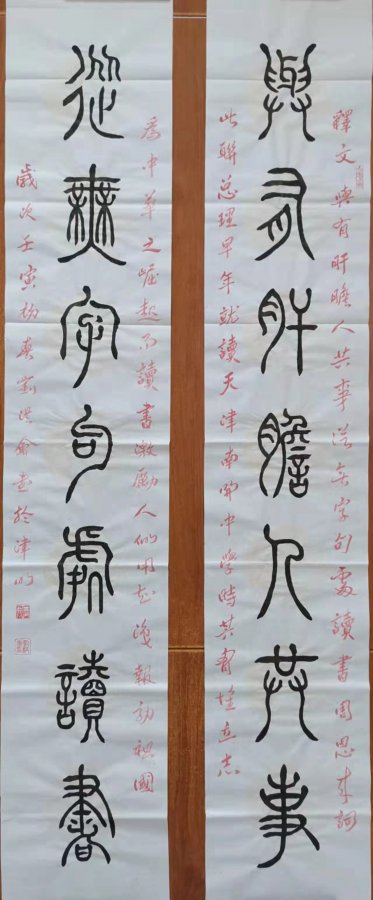 與有肝膽人共事
釋文與有肝膽人共事從無字句處讀書周恩來詞
此聯總理早年就讀天津南開中學時其背堂立志
從無字句處讀書
為中華之崛起而讀書激勵人們用知識報効祖國
歲次壬寅
於津